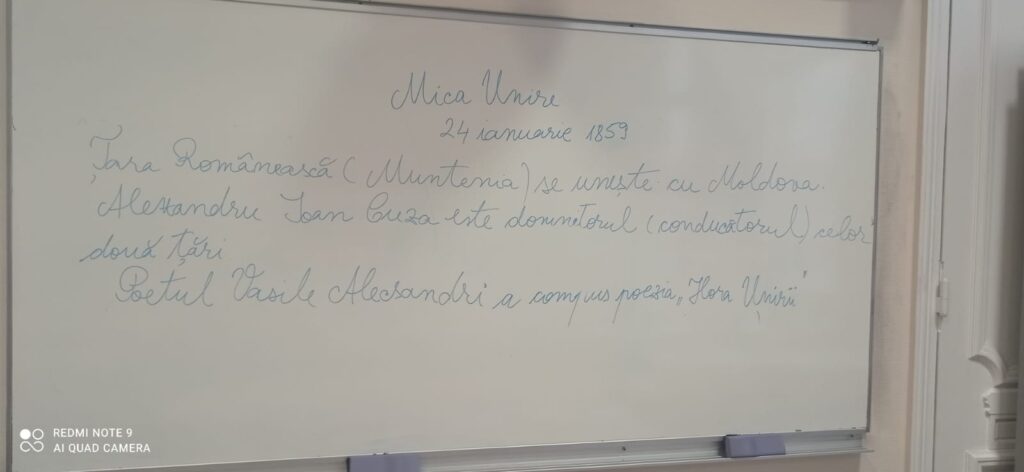 Mica Unire
24 ianuarie 1859
Țara Românească (Muntenia) se unește cu Moldova.
Alexandru Ioan Cuza este domnitorul (conducătorul) celor
două țări
Poetul Vasile Alecsandri a compus poezia „Hora Unirii"
REDMI NOTE 9
AI QUAD CAMERA